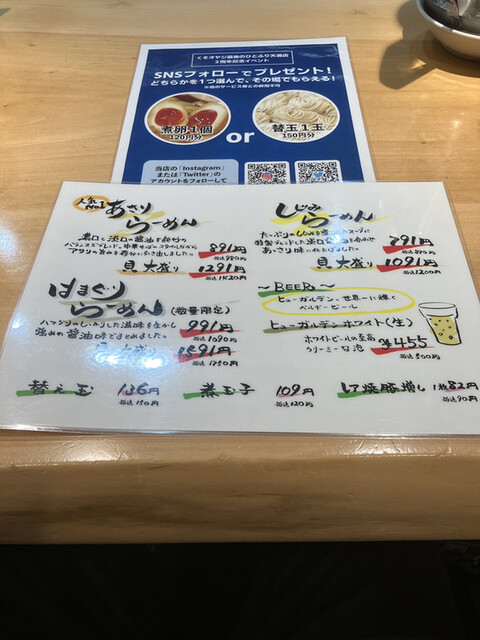 くそオヤジ最後のひとふり天満店
2周年記念イベント
SNSフォローでプレゼント！
どちらかを1つ選んで、その場でもらえる！
※他のサービス券との併用不可
煮卵1個
120円分
or
替玉1玉
150円分
当店の「Instagram」
または「Twitter」の
アカウントをフォローして
人気No.1 あさりらーめん
濃口と淡口の醤油を絶妙の
アサリの旨みを存分に引き出しました。
891円
税込980円
貝大盛り 1291円
税込1420円
しじみらーめん
たっぷりのしじみを
特製ブレンドした濃口醤油を合わせ
あっさり味に仕上げました。
791円
税込870円
貝大盛り 1091円
税込1200円
はまぐりらーめん (数量限定)
ハマグリのしっかりした滋味を生かし
強めの醤油味でまとめました。
991円
税込1090円
大盛り 1591円
税込1750円
〜BEER〜
ヒューガルデン、世界一に輝く
ベルギービール
ヒューガルデンホワイト(生)
ホワイトビールの至高
クリーミーな泡
¥455
税込500円
替え玉 136円
税込150円
煮玉子 109円
税込120円
レア焼豚増し 1枚82円
税込90円